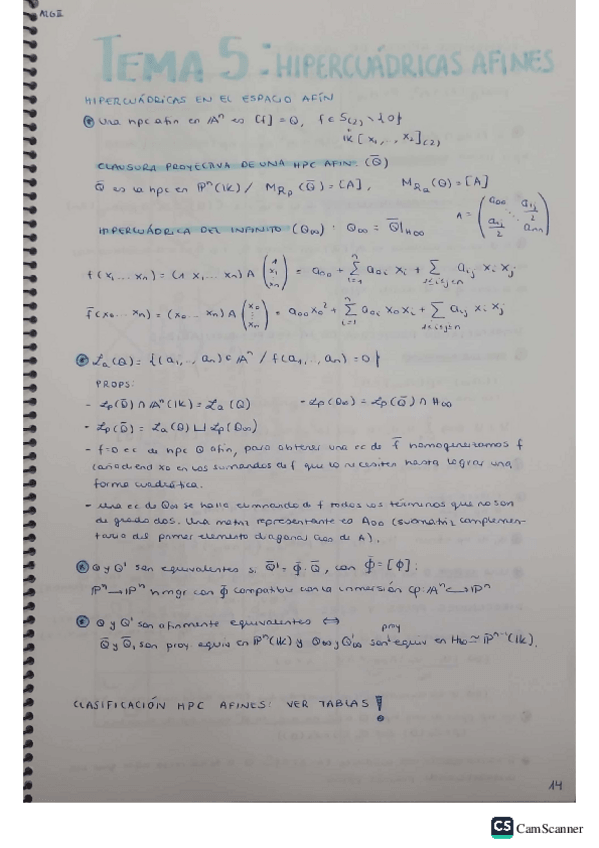 ALG II
TEMA 5: HIPERCUÁDRICAS AFINES
HIPERCUÁDRICAS EN EL ESPACIO AFÍN
Una hpc afin en Aⁿ es [f] = Q, f ∈ S₍₂₎ \ {0}
IK [x₁,..., x₂]₍₂₎
CLAUSURA PROYECTIVA DE UNA HPC AFIN (Q̄)
Q̄ es la hpc en Pⁿ(IK) / M_Rp (Q̄) = [A], M_Ra(Q) = [A]
A = (a₀₀ aᵢⱼ/2 aᵢⱼ/2 aₙₙ)
HIPERCUÁDRICA DEL INFINITO (Q∞) : Q∞ = Q̄|H∞
f(x₁...xₙ) = (1 x₁...xₙ) A (1 x₁ : xₙ) = a₀₀ + Σⁿᵢ₌₁ a₀ᵢ xᵢ + Σ₁≤ᵢ≤ⱼ≤ₙ aᵢⱼ xᵢ xⱼ
f̄(x₀...xₙ) = (x₀...xₙ) A (x₀ : xₙ) = a₀₀x₀² + Σⁿᵢ₌₁ a₀ᵢ x₀xᵢ + Σ₁≤ᵢ≤ⱼ≤ₙ aᵢⱼ xᵢ xⱼ
𝓛a(Q) = {(a₁,.., aₙ) ∈ Aⁿ / f(a₁,.., aₙ) = 0}
PROPS:
- 𝓛p(Q̄) ∩ Aⁿ(IK) = 𝓛a(Q) - 𝓛p(Q∞) = 𝓛p(Q̄) ∩ H∞
- 𝓛p(Q̄) = 𝓛a(Q) ⊔ 𝓛p(Q∞)
- f=0 ec de hpc Q afin, para obtener una ec de f̄ homogeneizamos f
(añadiend x₀ en los sumandos de f que lo necesiten hasta lograr una
forma cuadrática.
- Una ec de Q∞ se halla eliminando de f todos los términos que no son
de grado dos. Una matriz representante es A₀₀ (submatriz complemen-
taria del primer elemento diagonal a₀₀ de A).
Q y Q' son equivalentes si Q̄' = Φ̄ · Q̄, con Φ̄ = [ϕ̂] :
Pⁿ → Pⁿ hmgr con Φ̄ compatible con la inmersión φ: Aⁿ ↪ Pⁿ
Q y Q' son afinmente equivalentes ⟺
proy
Q̄ y Q̄, son proy equiv en Pⁿ(IK) y Q∞ y Q'∞ son equiv en H∞ ≃ Pⁿ⁻¹(IK).
CLASIFICACIÓN HPC AFINES: VER TABLAS !
14
CS CamScanner